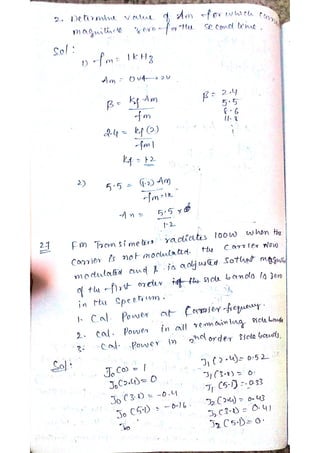 2. Determine value of Am for which carrier
magnitude zero for the second time.
Sol:
1) fm = 1KHz
Am = 0V to 2V
β = Kf Am / fm
β = 2.4
5.5
8.6
11.8
2.4 = Kf (2) / fm1
Kf = 1.2
2) 5.5 = (1.2) Am / fm = 1K
Am = 5.5 / 1.2
27 FM Transimeter radiates 100W when the
carrier is not modulated. the carrier now
modulated and β is adjusted so that magnitude
of the first order the side bands is zero
in the spectrum.
1. Cal. Power at Carrier frequency.
2. Cal. Power in all remaining side bands
3. Cal. Power in 2nd order side bands.
Sol:
J0(0) = 1
J1(2.4) = 0.52
J0(2.4) = 0
J1(3.8) = 0.
J0(3.8) = -0.4
J1(5.1) = -0.33
J0(5.1) = -0.16
J2(2.4) = 0.43
J2(3.8) = 0.41
J0
J2(5.1) = 0.